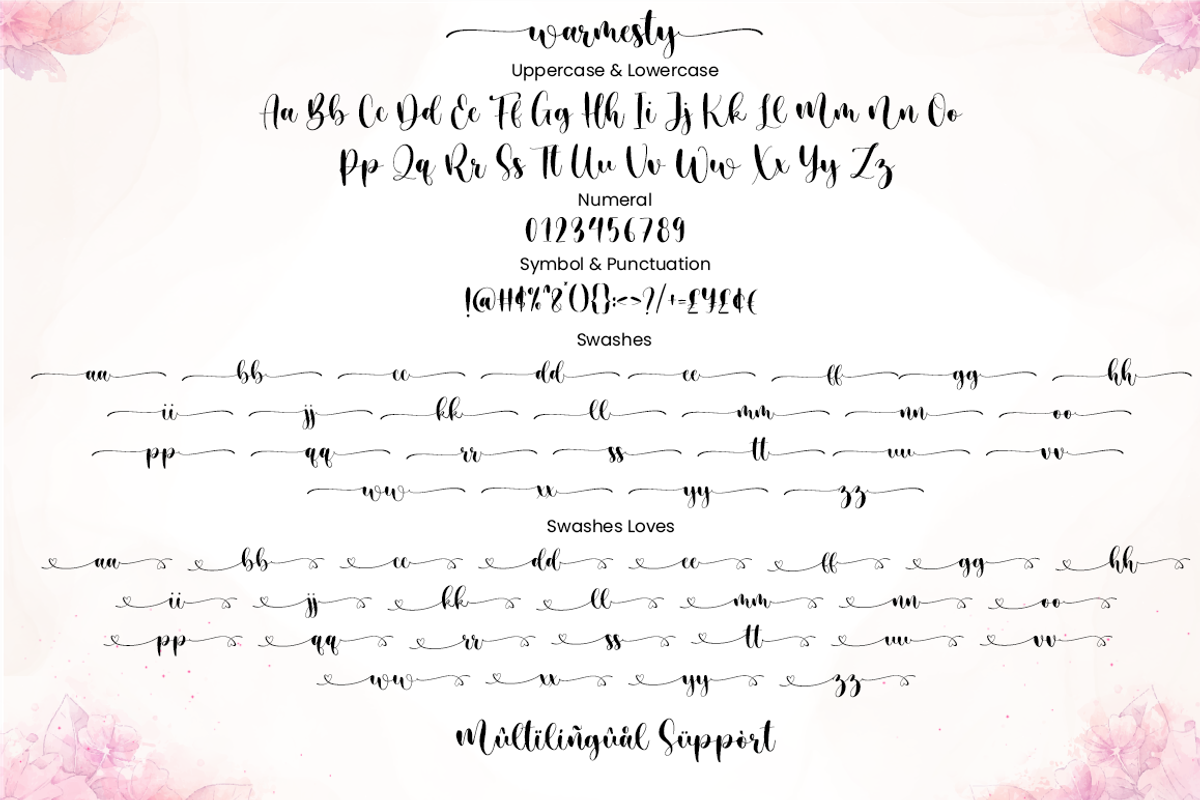 warmesty
Uppercase & Lowercase
Aa Bb Cc Dd Ee Ff Gg Hh Ii Jj Kk Ll Mm Nn Oo
Pp Qq Rr Ss Tt Uu Vv Ww Xx Yy Zz
Numeral
0123456789
Symbol & Punctuation
!@#$%^&*(){}:<>?/+=£¥£¢€
Swashes
aa bb cc dd ee ff gg hh
ii jj kk ll mm nn oo
pp qq rr ss tt uu vv
ww xx yy zz
Swashes Loves
aa bb cc dd ee ff gg hh
ii jj kk ll mm nn oo
pp qq rr ss tt uu vv
ww xx yy zz
Mûltïlingûål Süppòrt